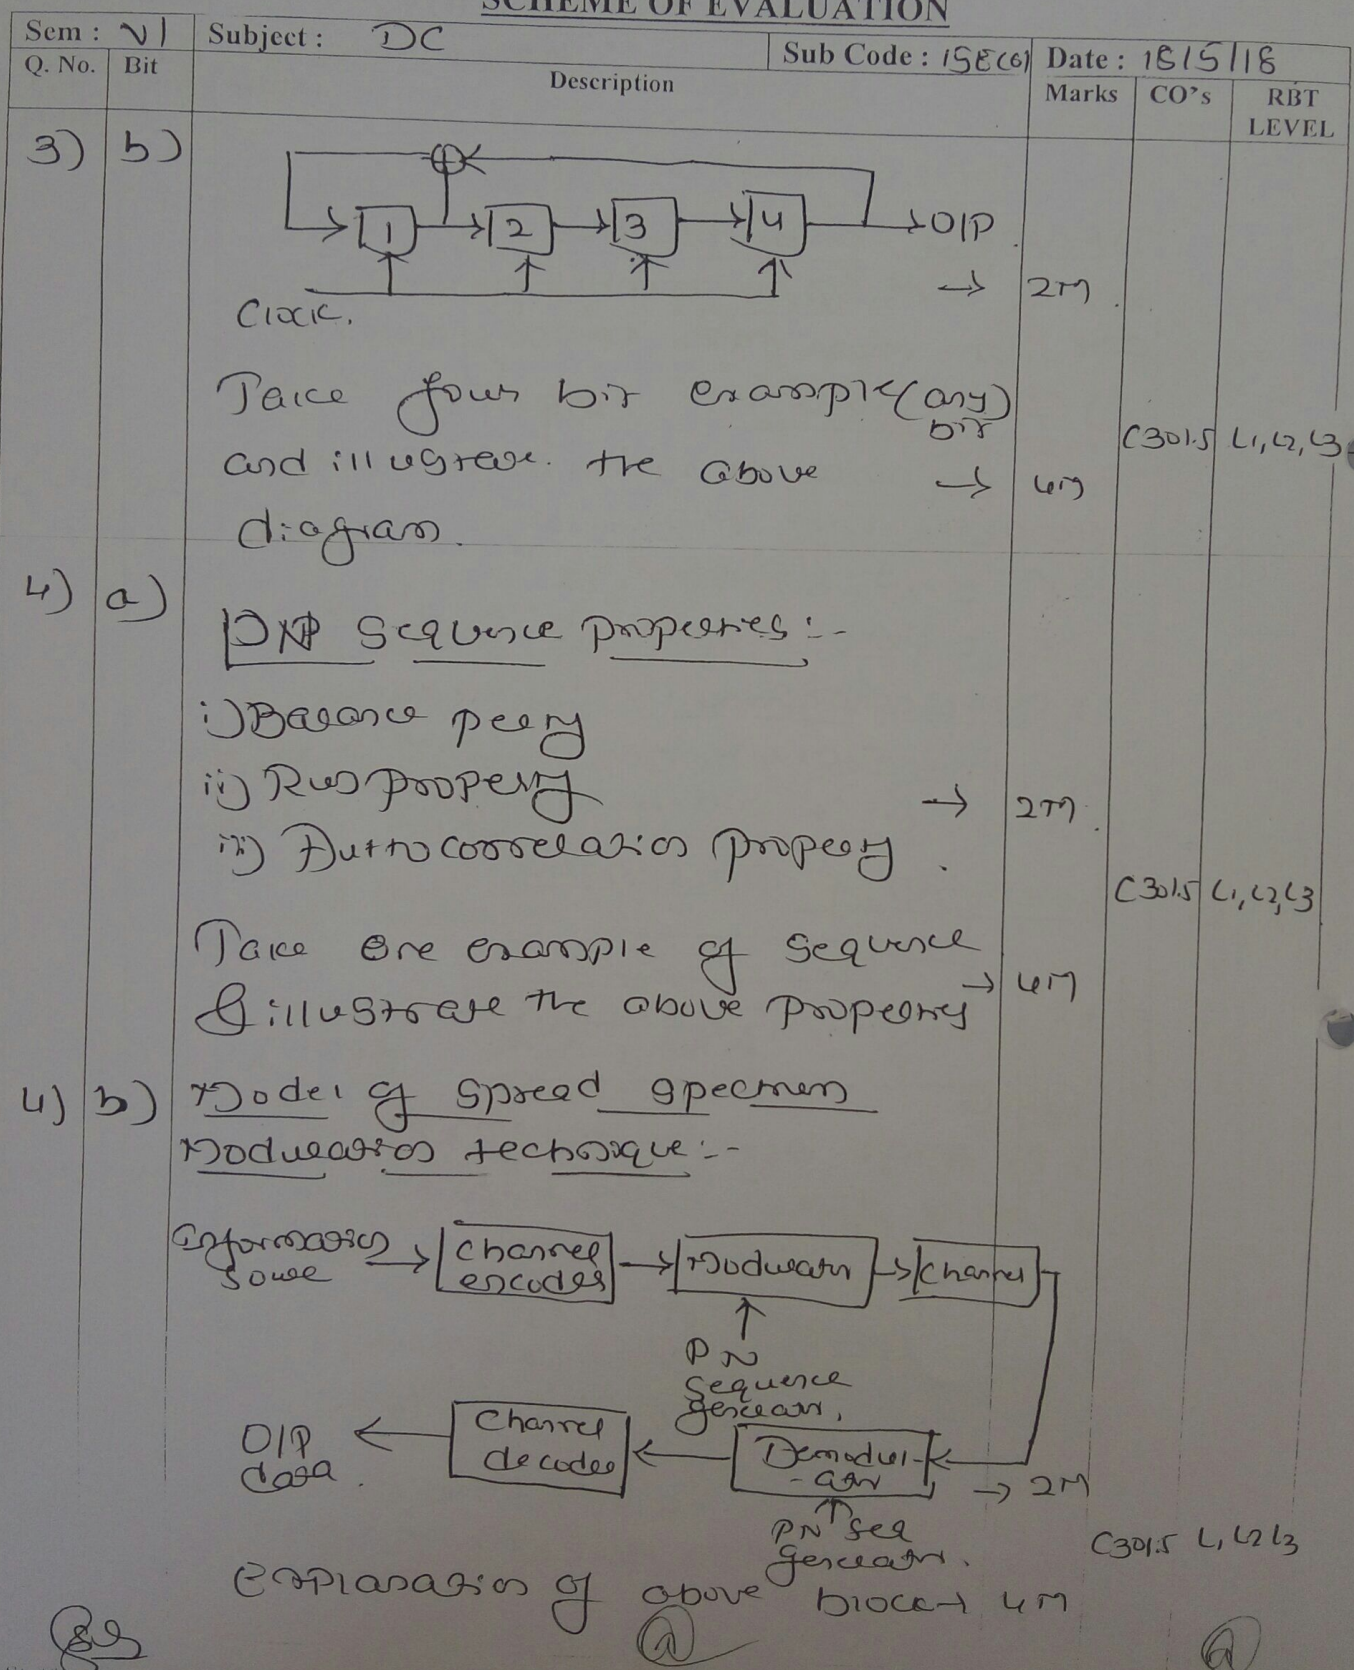 SCHEME OF EVALUATION
Sem : VI Subject : DC Sub Code : 15EC61 Date : 18/5/18
Q. No. Bit Description Marks CO's RBT LEVEL
3) b)
1 2 3 4 O/P
→ 2M
Clock.
Take four bit example (any)
bit
and illustrate the above → 4M C301.5 L1, L2, L3
diagram.
4) a)
PN Sequence properties :-
i) Balance
ii) Run property → 2M
iii) Autocorrelation property.
C301.5 L1, L2, L3
Take one example of sequence
& illustrate the above property → 4M
4) b) Model of spread spectrum
Modulation technique :-
Information source → Channel encoder → Modulator → Channel
PN
Sequence
generator,
O/P data. Channel decoder Demodul-ator → 2M
PN Seq
generator.
C301.5 L1, L2 L3
Explanation of above block → 4M